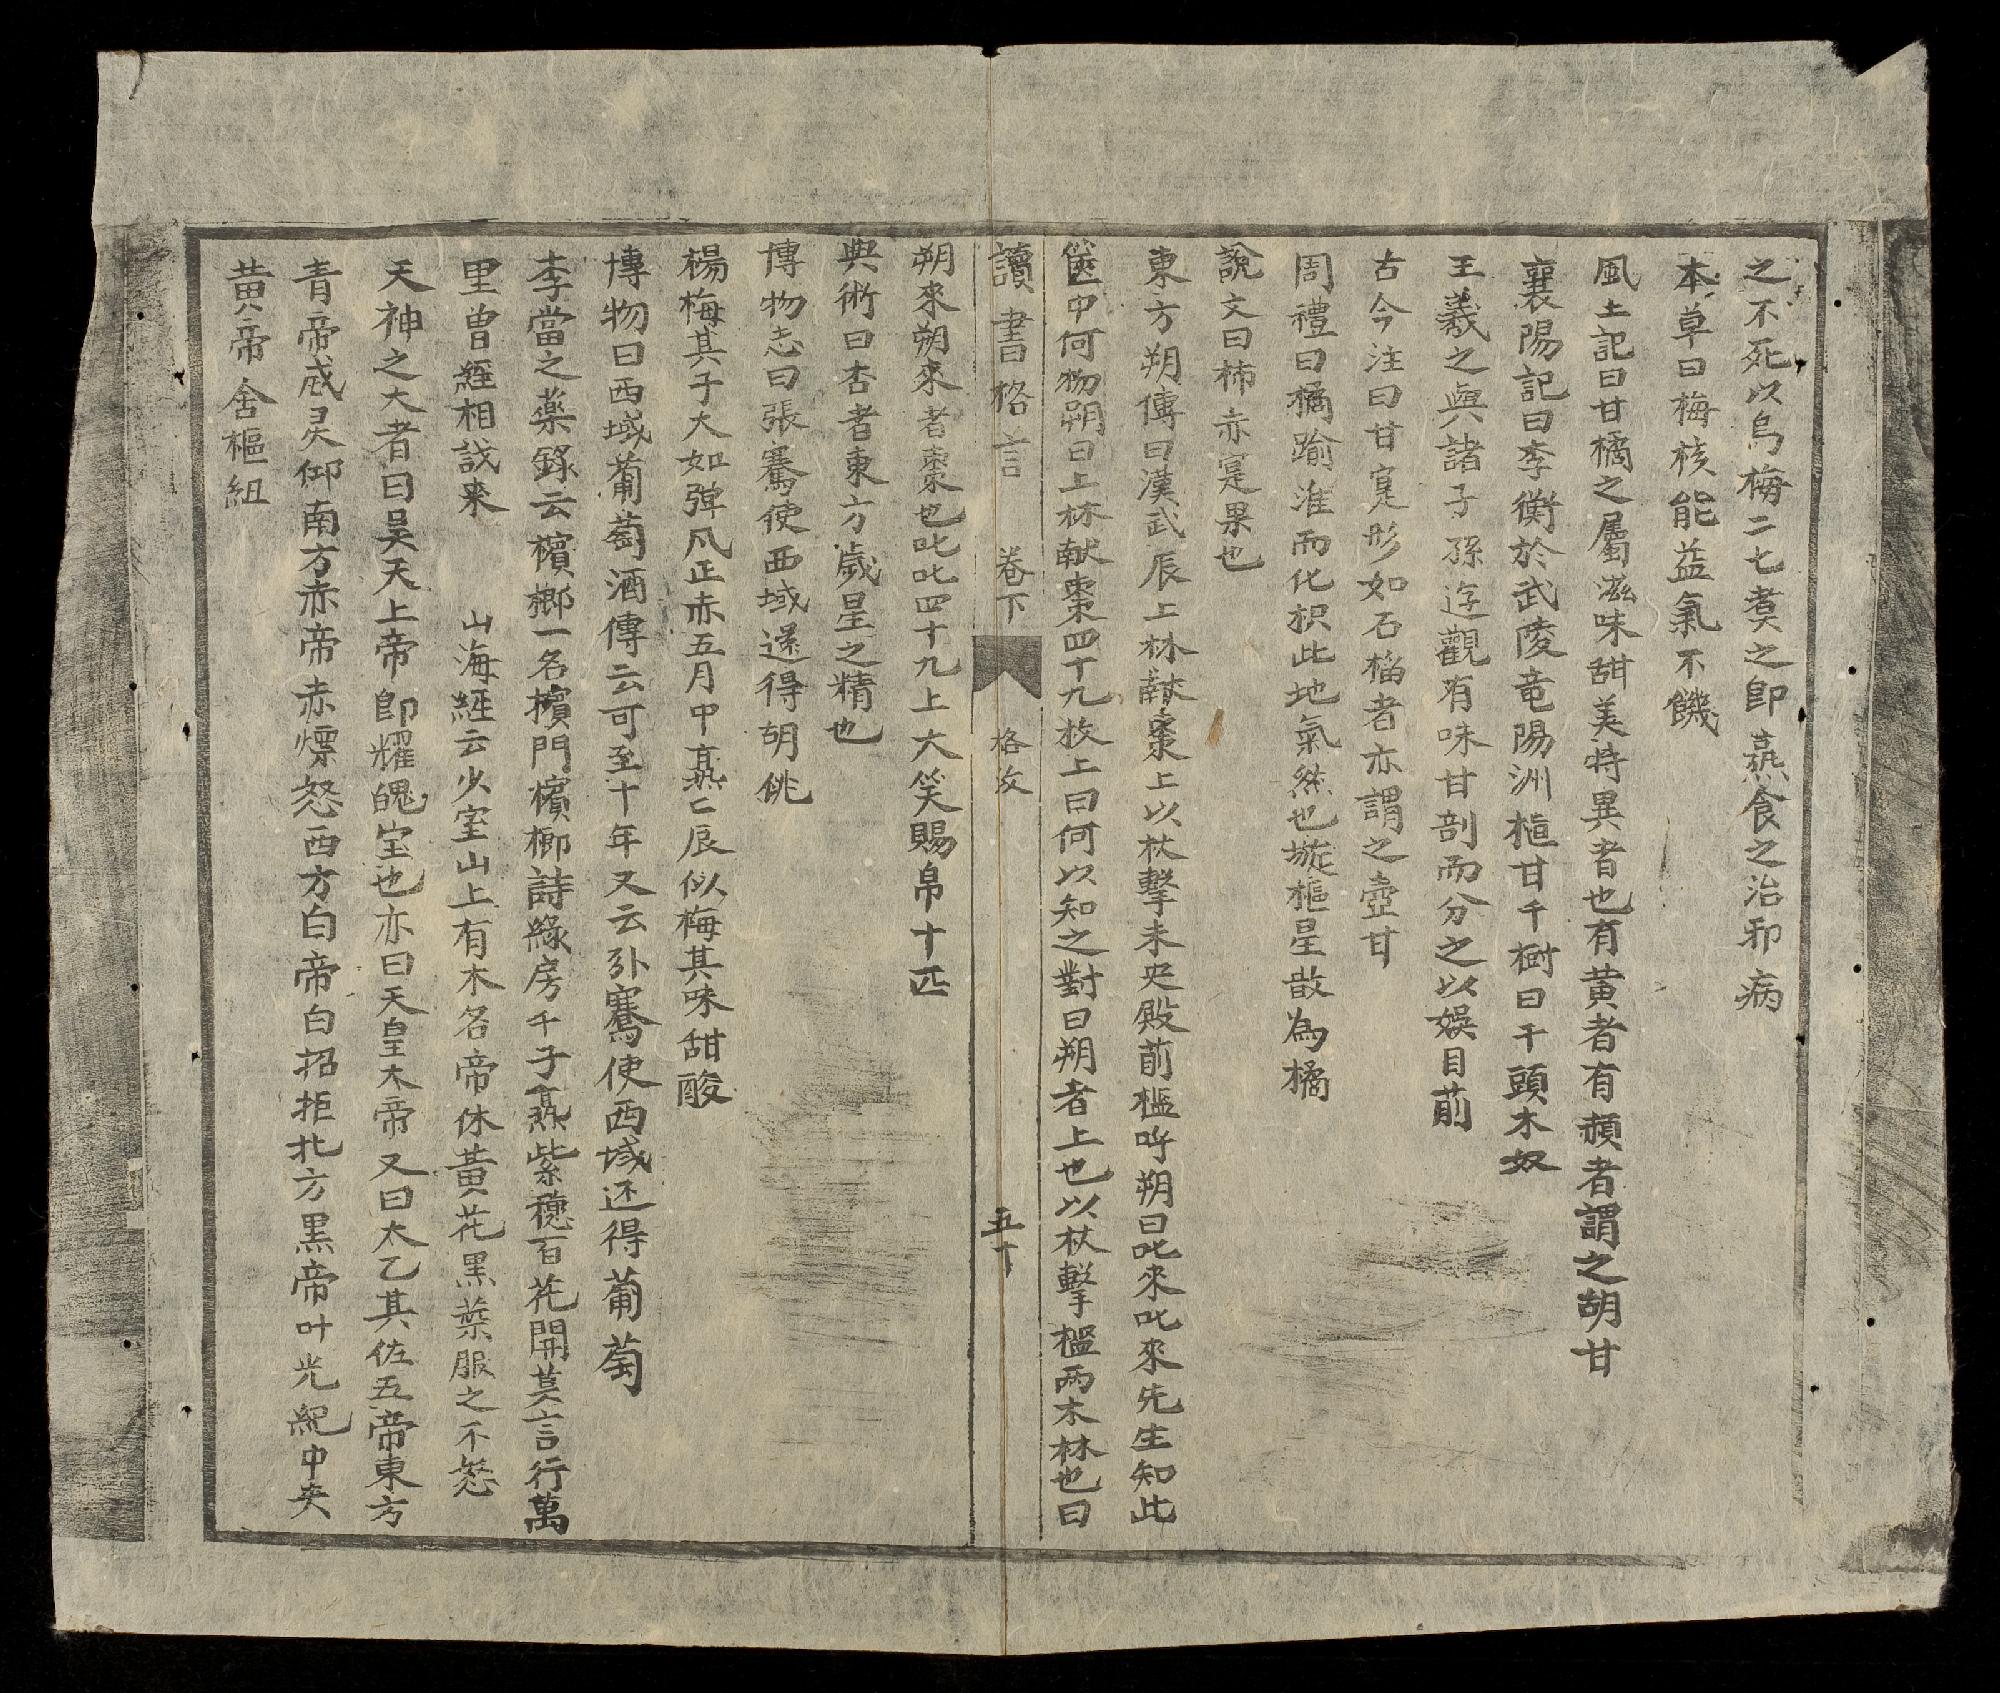 之不死以烏梅二七煑之即𤑔食之治邪病
本草曰梅核能益氣不饑
風土記曰甘橘之屬滋味甜美特異者也有黄者有頳者謂之胡甘
襄陽記曰李衡於武陵竜陽洲植甘千樹曰千頭木奴
王羲之與諸子孫逰觀有味甘剖而分之以娱目前
古今注曰甘寔形如石榴者亦謂之壺甘
周禮曰橘踰淮而化枳此地氣然也璇樞星散為橘
說文曰柿赤寔果也
東方朔傳曰漢武辰上林獻棗上以杖擊未央殿前檻呼朔曰叱來叱來先生知此
篋中何物朔曰上林献棗四十九枚上曰何以知之對曰朔者上也以杖擊檻兩木林也曰
讀書格言 卷下 格汝 五十
朔來朔來者棗也叱叱四十九上大笑賜帛十匹
典術曰杏者東方歲星之精也
博物志曰張騫使西域還得胡銚
楊梅其子大如弹凡正赤五月中𤍠辰似梅其味甜酸
博物曰西域葡萄酒傳云可至十年又云張騫使西域还得葡萄
李當之藥錄云檳榔一名檳門檳榔詩緑房千子𤍠紫穂百花開莫言行萬
里曽經相㦯来 山海經云少室山上有木名帝休黄花黒葉服之不怒
天神之大者曰昊天上帝即耀魄宝也亦曰天皇大帝又曰太乙其佐五帝東方
青帝威灵仰南方赤帝赤熛怒西方白帝白招拒北方黒帝叶光紀中央
黄帝含樞紐